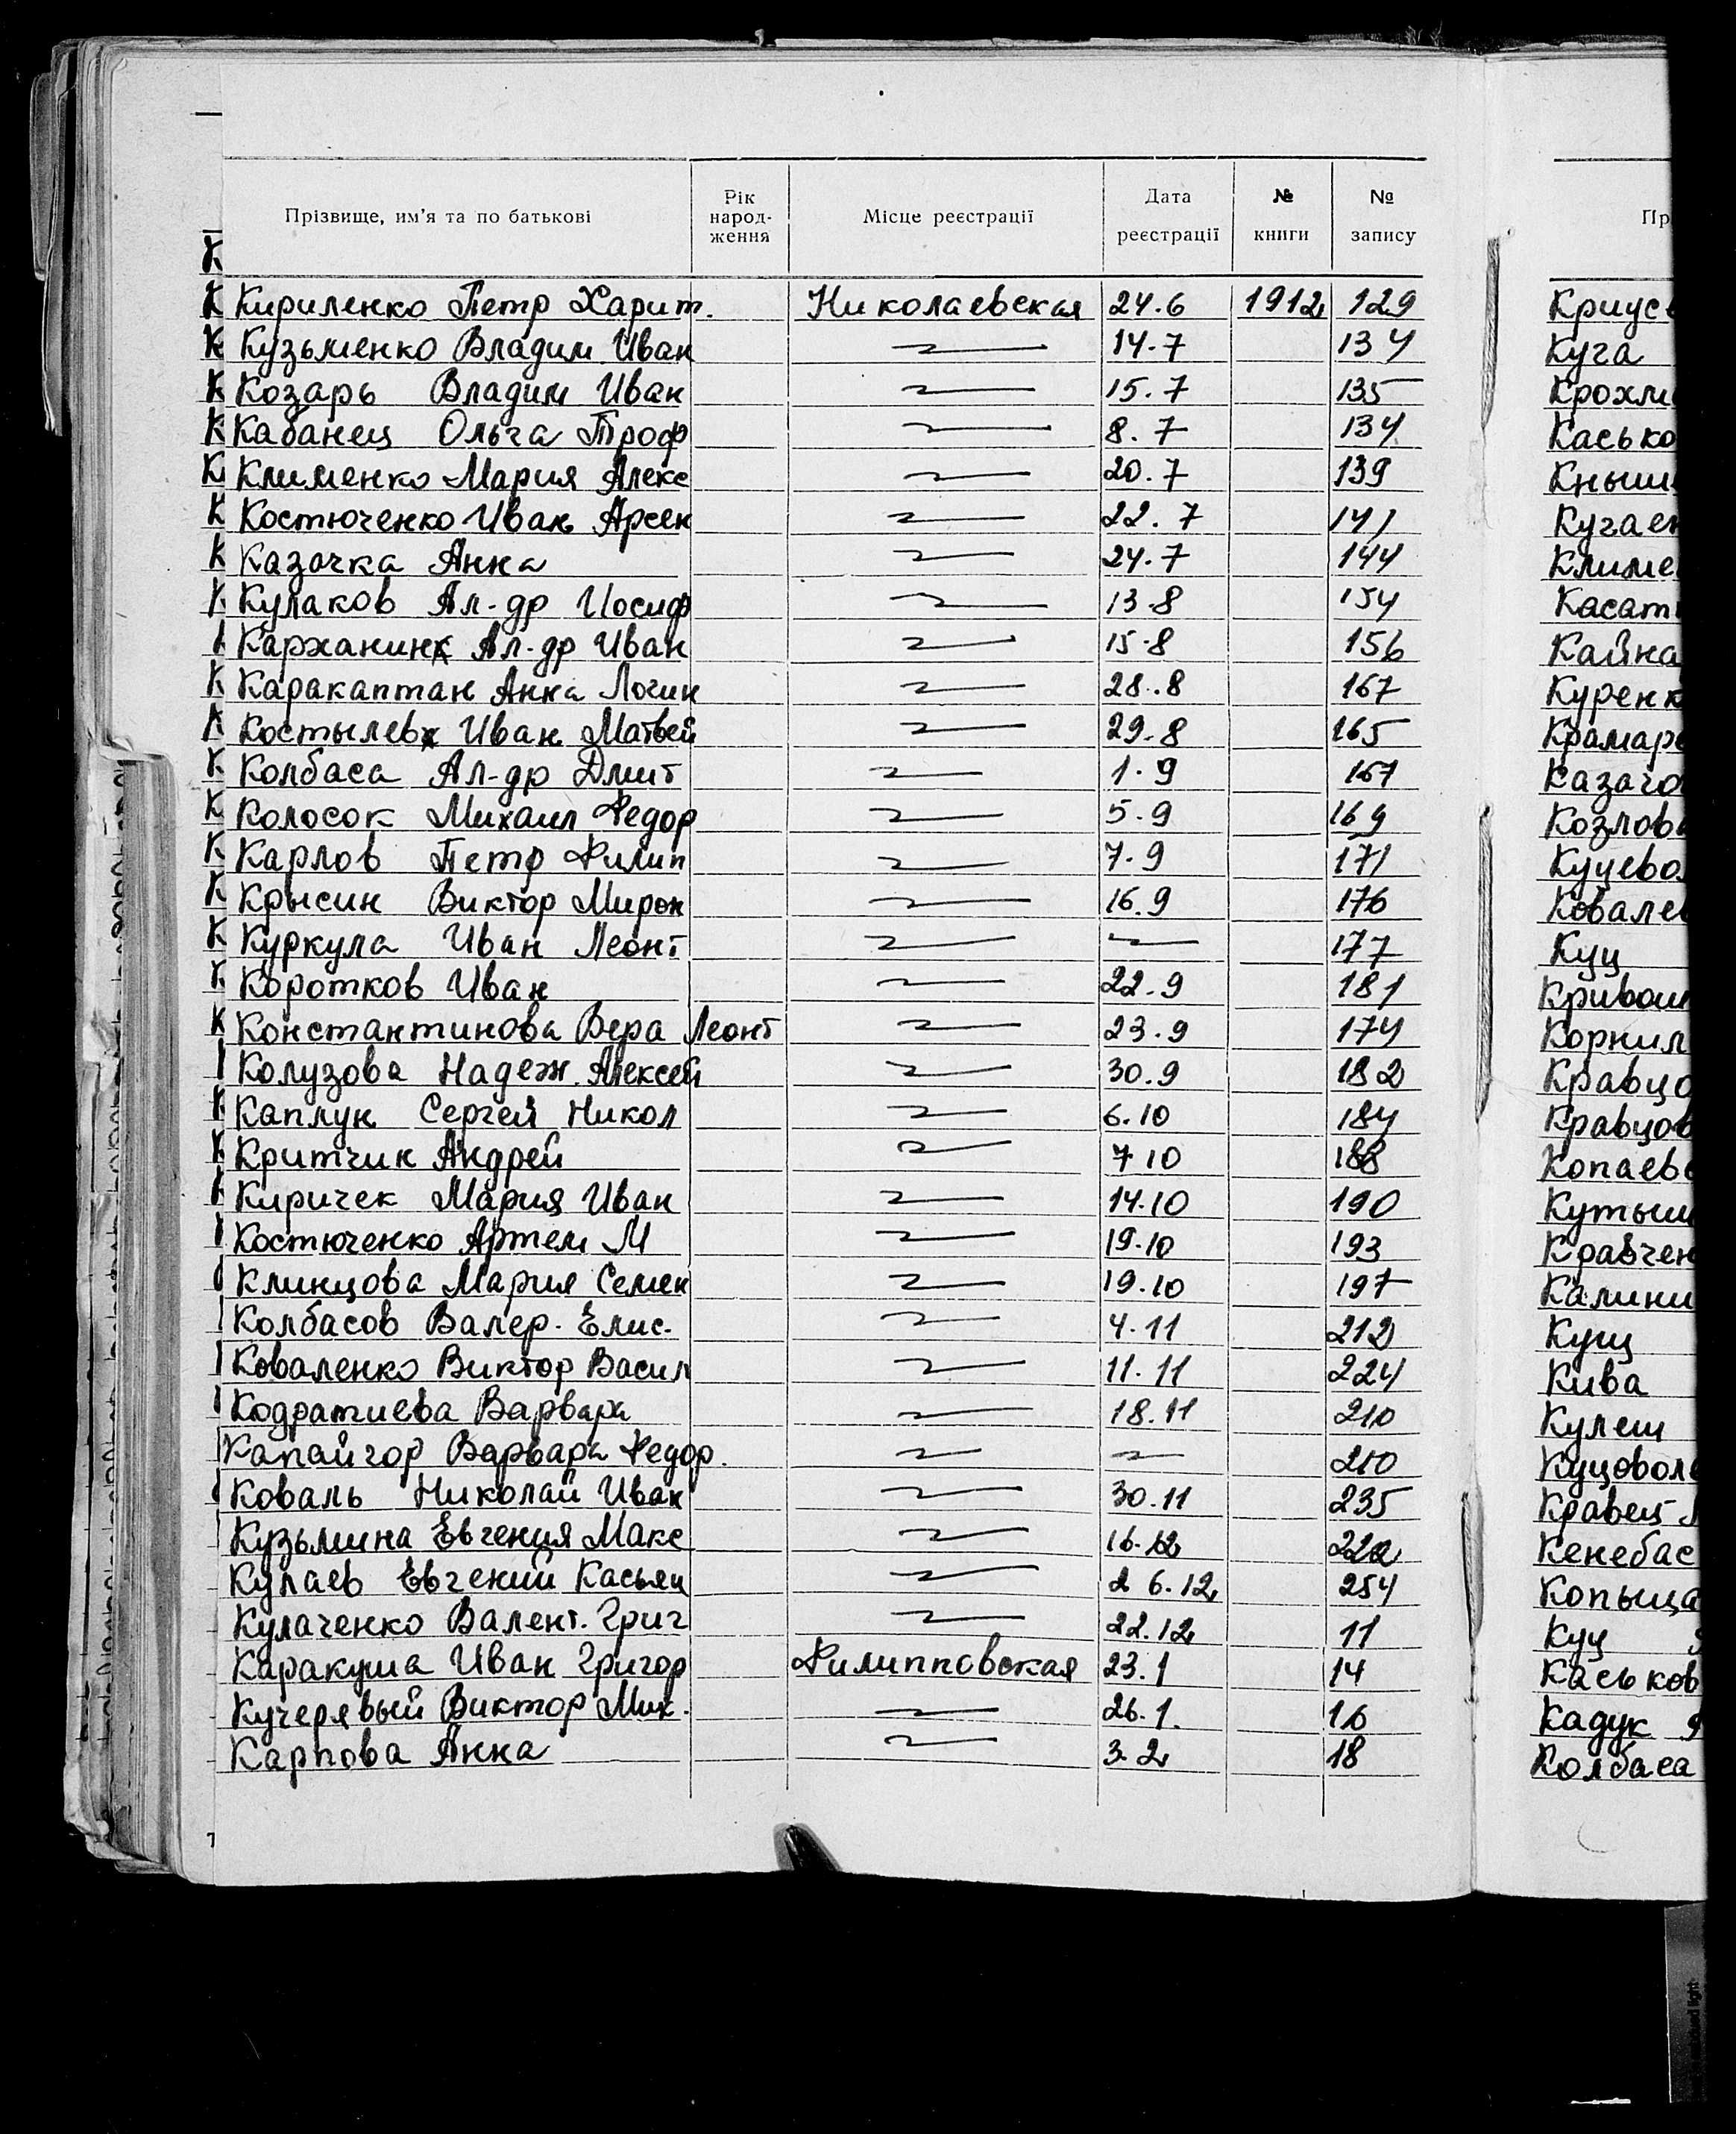 Прізвище, им'я та по батькові Рік народ- ження Місце реєстрації Дата реєстрації № книги № запису
Кириленко Петр Харит. Николаевская 24.6 1912 129
Кузьменко Владим Иван 14.7 134
Козарь Владим Иван 15.7 135
Кабанец Ольга Троф 8.7 134
Клименко Мария Алекс 20.7 139
Костюченко Иван Арсен 22.7 141
Казачка Анна 24.7 144
Кулаков Ал-др Иосиф 13.8 154
Каржанин Ал-др Иван 15.8 156
Каракаптан Анна Логин 28.8 167
Костылев Иван Матвей 29.8 165
Колбаса Ал-др Дмит 1.9 167
Колосок Михаил Федор 5.9 169
Карлов Петр Филип 7.9 171
Крысин Виктор Мирон 16.9 176
Куркула Иван Леонт 177
Коротков Иван 22.9 181
Константинова Вера Леонт 23.9 174
Колузова Надеж. Алексей 30.9 182
Каплун Сергей Никол 6.10 184
Критчик Андрей 7 10 188
Киричек Мария Иван 14.10 190
Костюченко Артем М 19.10 193
Клинцова Мария Семен 19.10 197
Колбасов Валер. Елис. 4.11 212
Коваленко Виктор Васил 11.11 224
Кодратиева Варвара 18.11 210
Капайгор Варвара Федор. 210
Коваль Николай Иван 30.11 235
Кузьмина Евгения Макс 16.12
Кулаев Евгений Касьян 26.12 254
Кулаченко Валент. Григ 22.12 11
Каракуша Иван Григор Филипповская 23.1 14
Кучерявый Виктор Мих. 26.1. 16
Карпова Анна 3.2 18
Пр
Криусе
Куча
Крохми
Касько
Кныш
Кугаен
Климе
Касат
Кайна
Куренк
Крамар
Казачо
Козлов
Куцево
Ковале
Куц
Кривош
Корнил
Кравцо
Кравцов
Копаев
Кутыш
Кравчен
Калини
Кущ
Кива
Кулеш
Куцовол
Кравец
Кенебас
Копыца
Куц
Каськов
Кадук
Колбаса